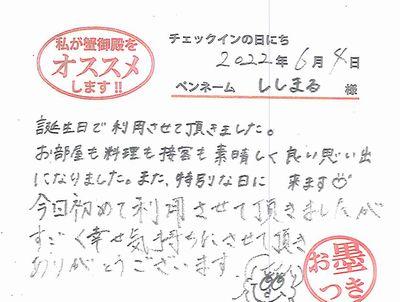 私が蟹御殿を
オススメ
します!!
チェックインの日にち
2022年6月4日
ペンネーム ししまる 様
誕生日で利用させて頂きました。
お部屋も料理も接客も素晴しく良い思い出
になりました。また、特別な日に 来ます
今日初めて利用させて頂きましたが
すごく幸せ気持ちにさせて頂き
ありがとうございます
お墨
つき